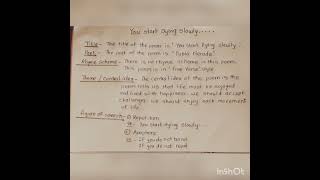 You start Dying Slowly.....
Title - The title of the poem is 'You start Dying Slowly'.
Poet - The poet of the poem is 'Pablo Neruda'
Rhyme Scheme - There is no rhyme scheme in this poem.
This poem is in 'Free Verse' style.
Theme / Central idea - The central idea of the poem is the
poem tells us that life must be enjoyed
and lived with happiness. We should accept
challenges. We should enjoy each movement
of life.
Figure of speech - ① Repetition
You start Dying slowly...
② Anaphora
If you do not travel
If you do not read
InShOt